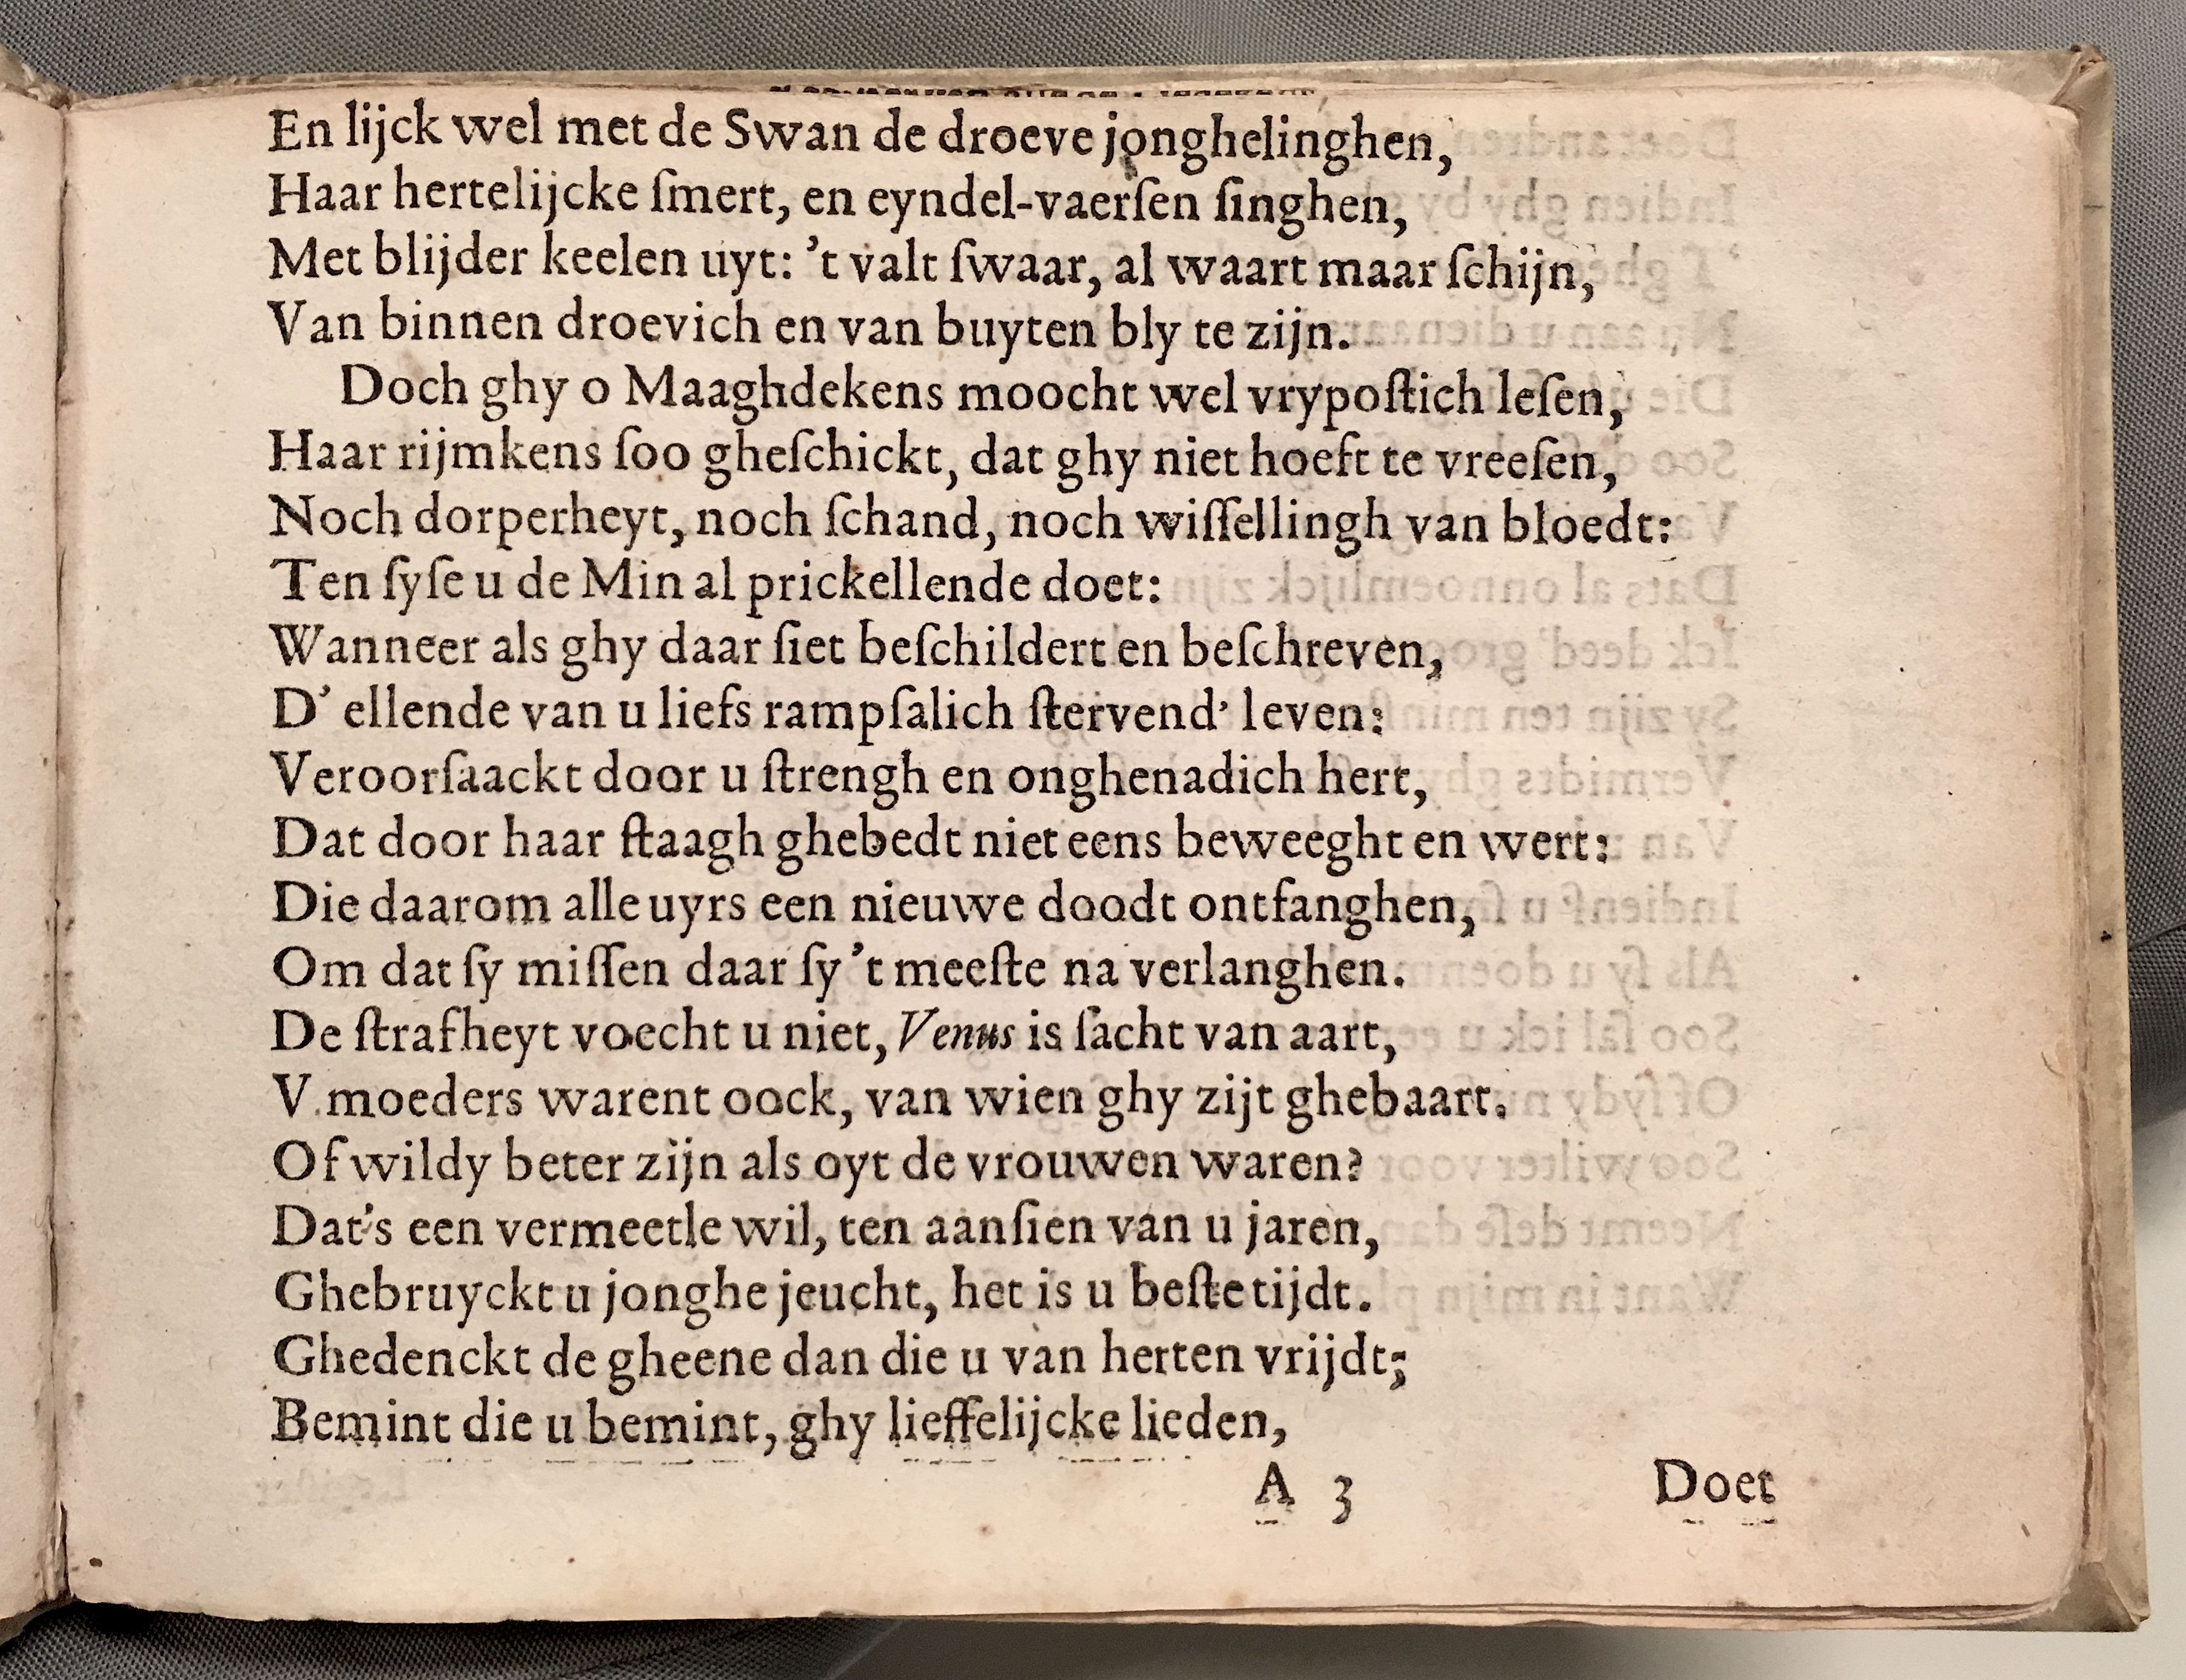 En lijck wel met de Swan de droeve jonghelinghen,
Haar hertelijcke ſmert, en eyndel-vaerſen ſinghen,
Met blijder keelen uyt: 't valt ſwaar, al waart maar ſchijn,
Van binnen droevich en van buyten bly te zijn.
Doch ghy o Maaghdekens moocht wel vrypoſtich leſen,
Haar rijmkens ſoo gheſchickt, dat ghy niet hoeft te vreeſen,
Noch dorperheyt, noch ſchand, noch wiſſellingh van bloedt:
Ten ſyſe u de Min al prickellende doet:
Wanneer als ghy daar ſiet beſchildert en beſchreven,
D' ellende van u liefs rampſalich ſtervend' leven:
Veroorſaackt door u ſtrengh en onghenadich hert,
Dat door haar ſtaagh ghebedt niet eens beweeght en wert:
Die daarom alle uyrs een nieuwe doodt ontfanghen,
Om dat ſy miſſen daar ſy 't meeſte na verlanghen.
De ſtrafheyt voecht u niet, Venus is ſacht van aart,
V moeders warent oock, van wien ghy zijt ghebaart.
Of wildy beter zijn als oyt de vrouwen waren?
Dat's een vermeetle wil, ten aanſien van u jaren,
Ghebruyckt u jonghe jeucht, het is u beſte tijdt.
Ghedenckt de gheene dan die u van herten vrijdt;
Bemint die u bemint, ghy lieffelijcke lieden,
A 3 Doet